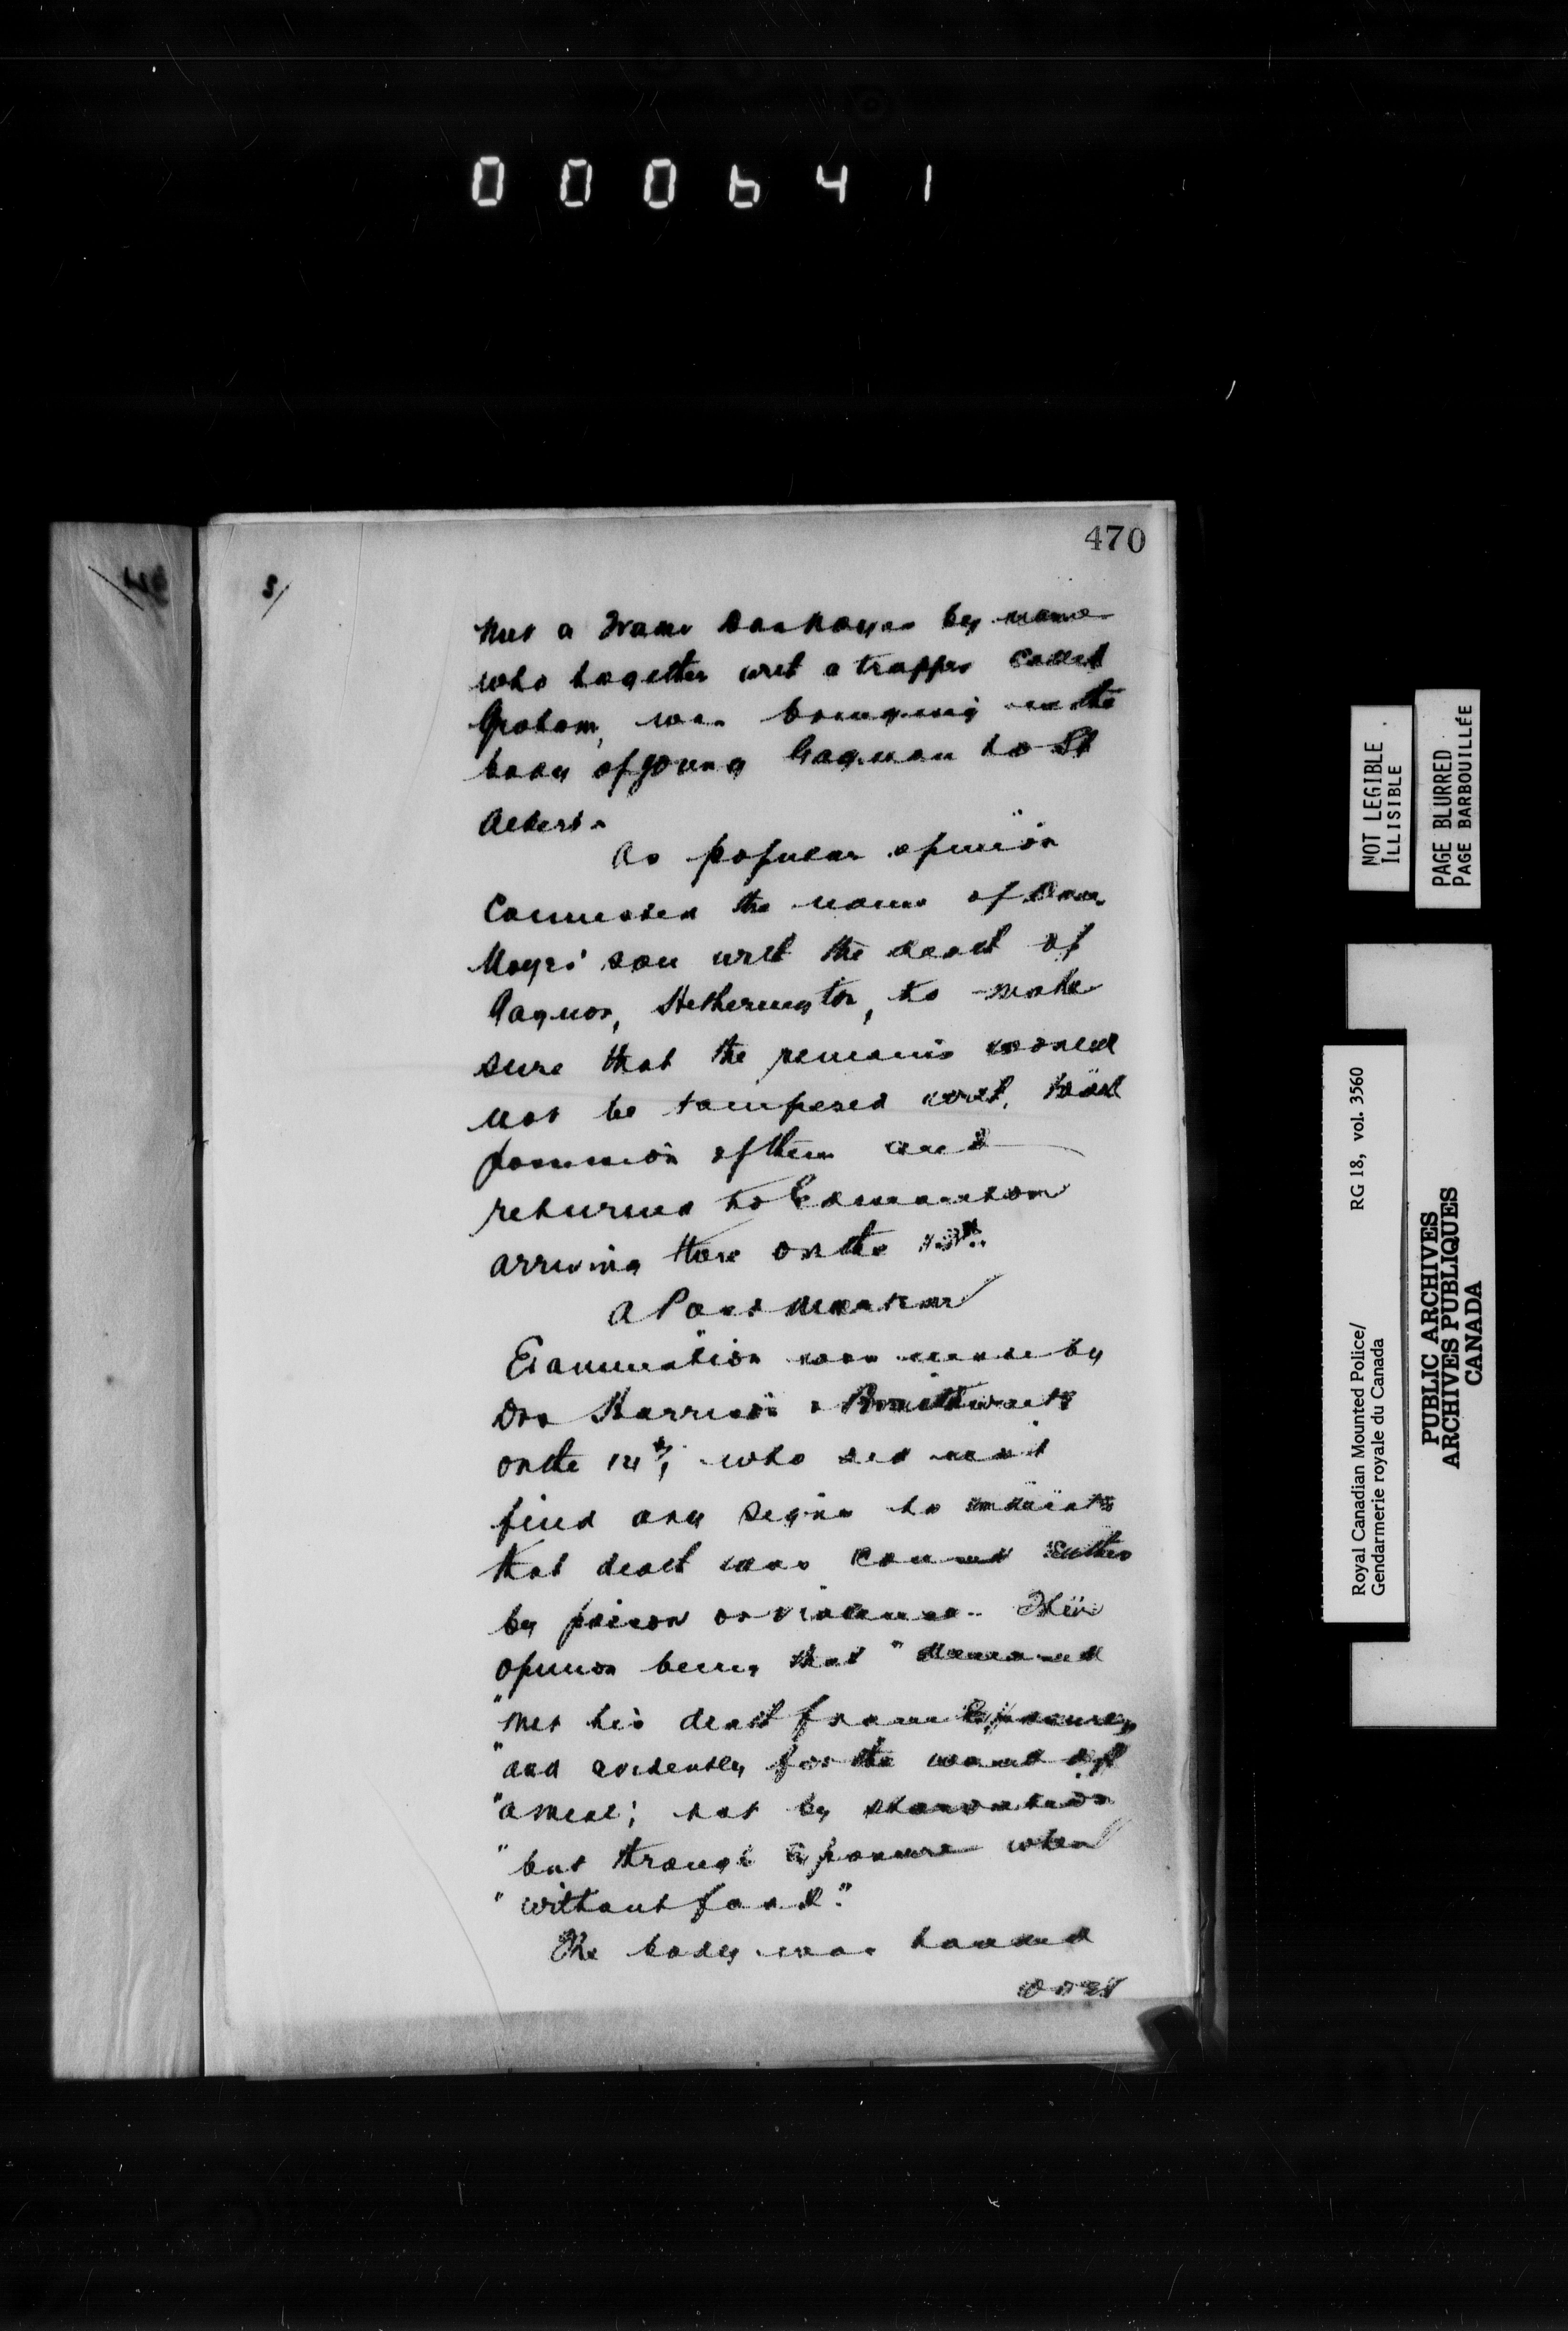 000641
470
5/
met a trader by name
who together with a trapper called
Graham, was bringing in the
body of young Gagnon to St
Albert.
As popular opinion
connected the name of
son with the death of
Gagnon, Hetherington, to make
sure that the remains would
not be tampered with, took
possession of them and
returned to Edmonton
arriving there on the
A Post Mortem
Examination was made by
Drs Harrison & Braithwaite
on the 14th, who did not
find any signs to indicate
that death was caused either
by poison or violence. Their
opinion being that " deceased
" met his death from Exposure,
" and evidently for the want of
" a meal; not by starvation
" but through Exposure when
" without food."
The body was handed
over
NOT LEGIBLE
ILLISIBLE
PAGE BLURRED
PAGE BARBOUILLÉE
Royal Canadian Mounted Police/ RG 18, vol. 3560
Gendarmerie royale du Canada
PUBLIC ARCHIVES
ARCHIVES PUBLIQUES
CANADA